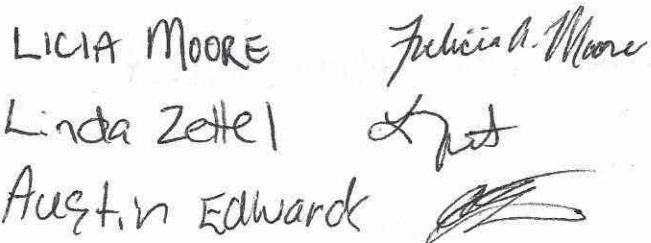 LICIA MOORE Felicia A. Moore
Linda Zettel
Austin Edwards